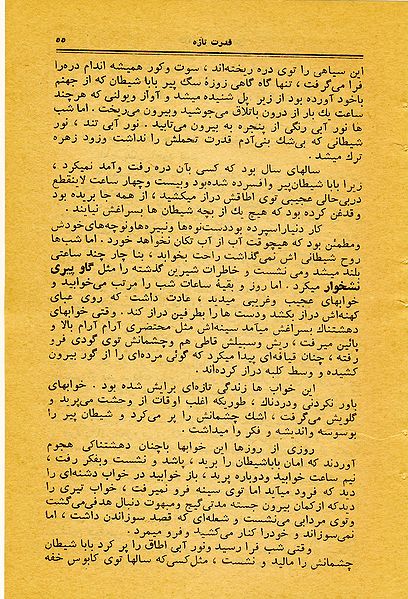 قدرت تازه
۵۵
این سیاهی را توی دره ریخته‌اند ، سوت و کور همیشه اندام دره‌را
فرا می‌گرفت ، تنها گاه گاهی زوزهٔ سگ پیر بابا شیطان که از جهنم
باخود آورده بود از زیر پل شنیده میشد و آواز ویولنی که هرچند
ساعت یك بار از درون باتلاق می‌جوشید وبیرون می‌ریخت . اما شب
ها نور آبی رنگی از پنجره به بیرون می‌تابید . نور آبی تند ، نور
شیطانی که بی‌شك بنی‌آدم قدرت تحملش را نداشت وزود زهره
ترك میشد .
سالهای سال بود که کسی بآن دره رفت وآمد نمیکرد ،
زیرا بابا شیطان‌پیر و افسرده شده‌بود وبیست وچهار ساعت لاینقطع
دربی‌حالی عجیبی توی اطاقش دراز میکشید ، از همه جا بریده بود
وقدغن کرده بود که هیچ یك از بچه شیطان ها بسراغش نیایند .
کار دنیاراسپرده بوددست‌نوه‌ها ونبیره‌هاونوچه‌های‌خودش
ومطمئن بود که هیچوقت آب از آب تکان نخواهد خورد . اما شب‌ها
روح شیطانی اش نمی‌گذاشت راحت بخوابد ، بنا چار چند ساعتی
بلند میشد ومی نشست و خاطرات شیرین گذشته را مثل گاو پیری
نشخوار میکرد . اما روز و بقیهٔ ساعات شب را مرتب می‌خوابید و
خوابهای عجیب وغریبی میدید ، عادت داشت که روی عبای
کهنه‌اش دراز بکشد ودست ها را بطرفین دراز کند . وقتی خوابهای
دهشتناك بسراغش میآمد سینه‌اش مثل محتضری آرام آرام بالا و
پائین میرفت ، ریش وسبیلش قاطی هم وچشمانش توی گودی فرو
رفته ، چنان قیافه‌ای پیدا میکرد که گوئی مرده‌ای را از گور بیرون
کشیده و وسط کلبه دراز کرده‌اند .
این خواب ها زندگی تازه‌ای برایش شده بود . خوابهای
باور نکردنی ودردناك ، طوریکه اغلب اوقات از وحشت می‌پرید و
گلویش می‌گرفت ، اشك چشمانش را پر می‌کرد و شیطان پیر را
بوسوسه واندیشه و فکر وا میداشت .
روزی از روزها این خوابها باچنان دهشتناکی هجوم
آوردند که امان باباشیطان را برید ، پاشد و نشست وبفکر رفت ،
نیم ساعت خوابید ودوباره پرید ، باز خوابید در خواب دشنه‌ای را
دید که فرود میآید اما توی سینه فرو نمیرفت ، خواب تیری را
دیدکه ازکمان بیرون جسته مدتی‌گیج ومبهوت دنبال هدفی‌می‌گشت
وتوی مردابی می‌نشست و شعله‌ای که قصد سوزاندن داشت ، اما
نمی‌سوزاند و خودرا کنار می‌کشید وفرو میمرد .
وقتی شب فرا رسید ونور آبی اطاق را پر کرد بابا شیطان
چشمانش را مالید و نشست ، مثل‌کسی‌که سالها توی کابوس خفه